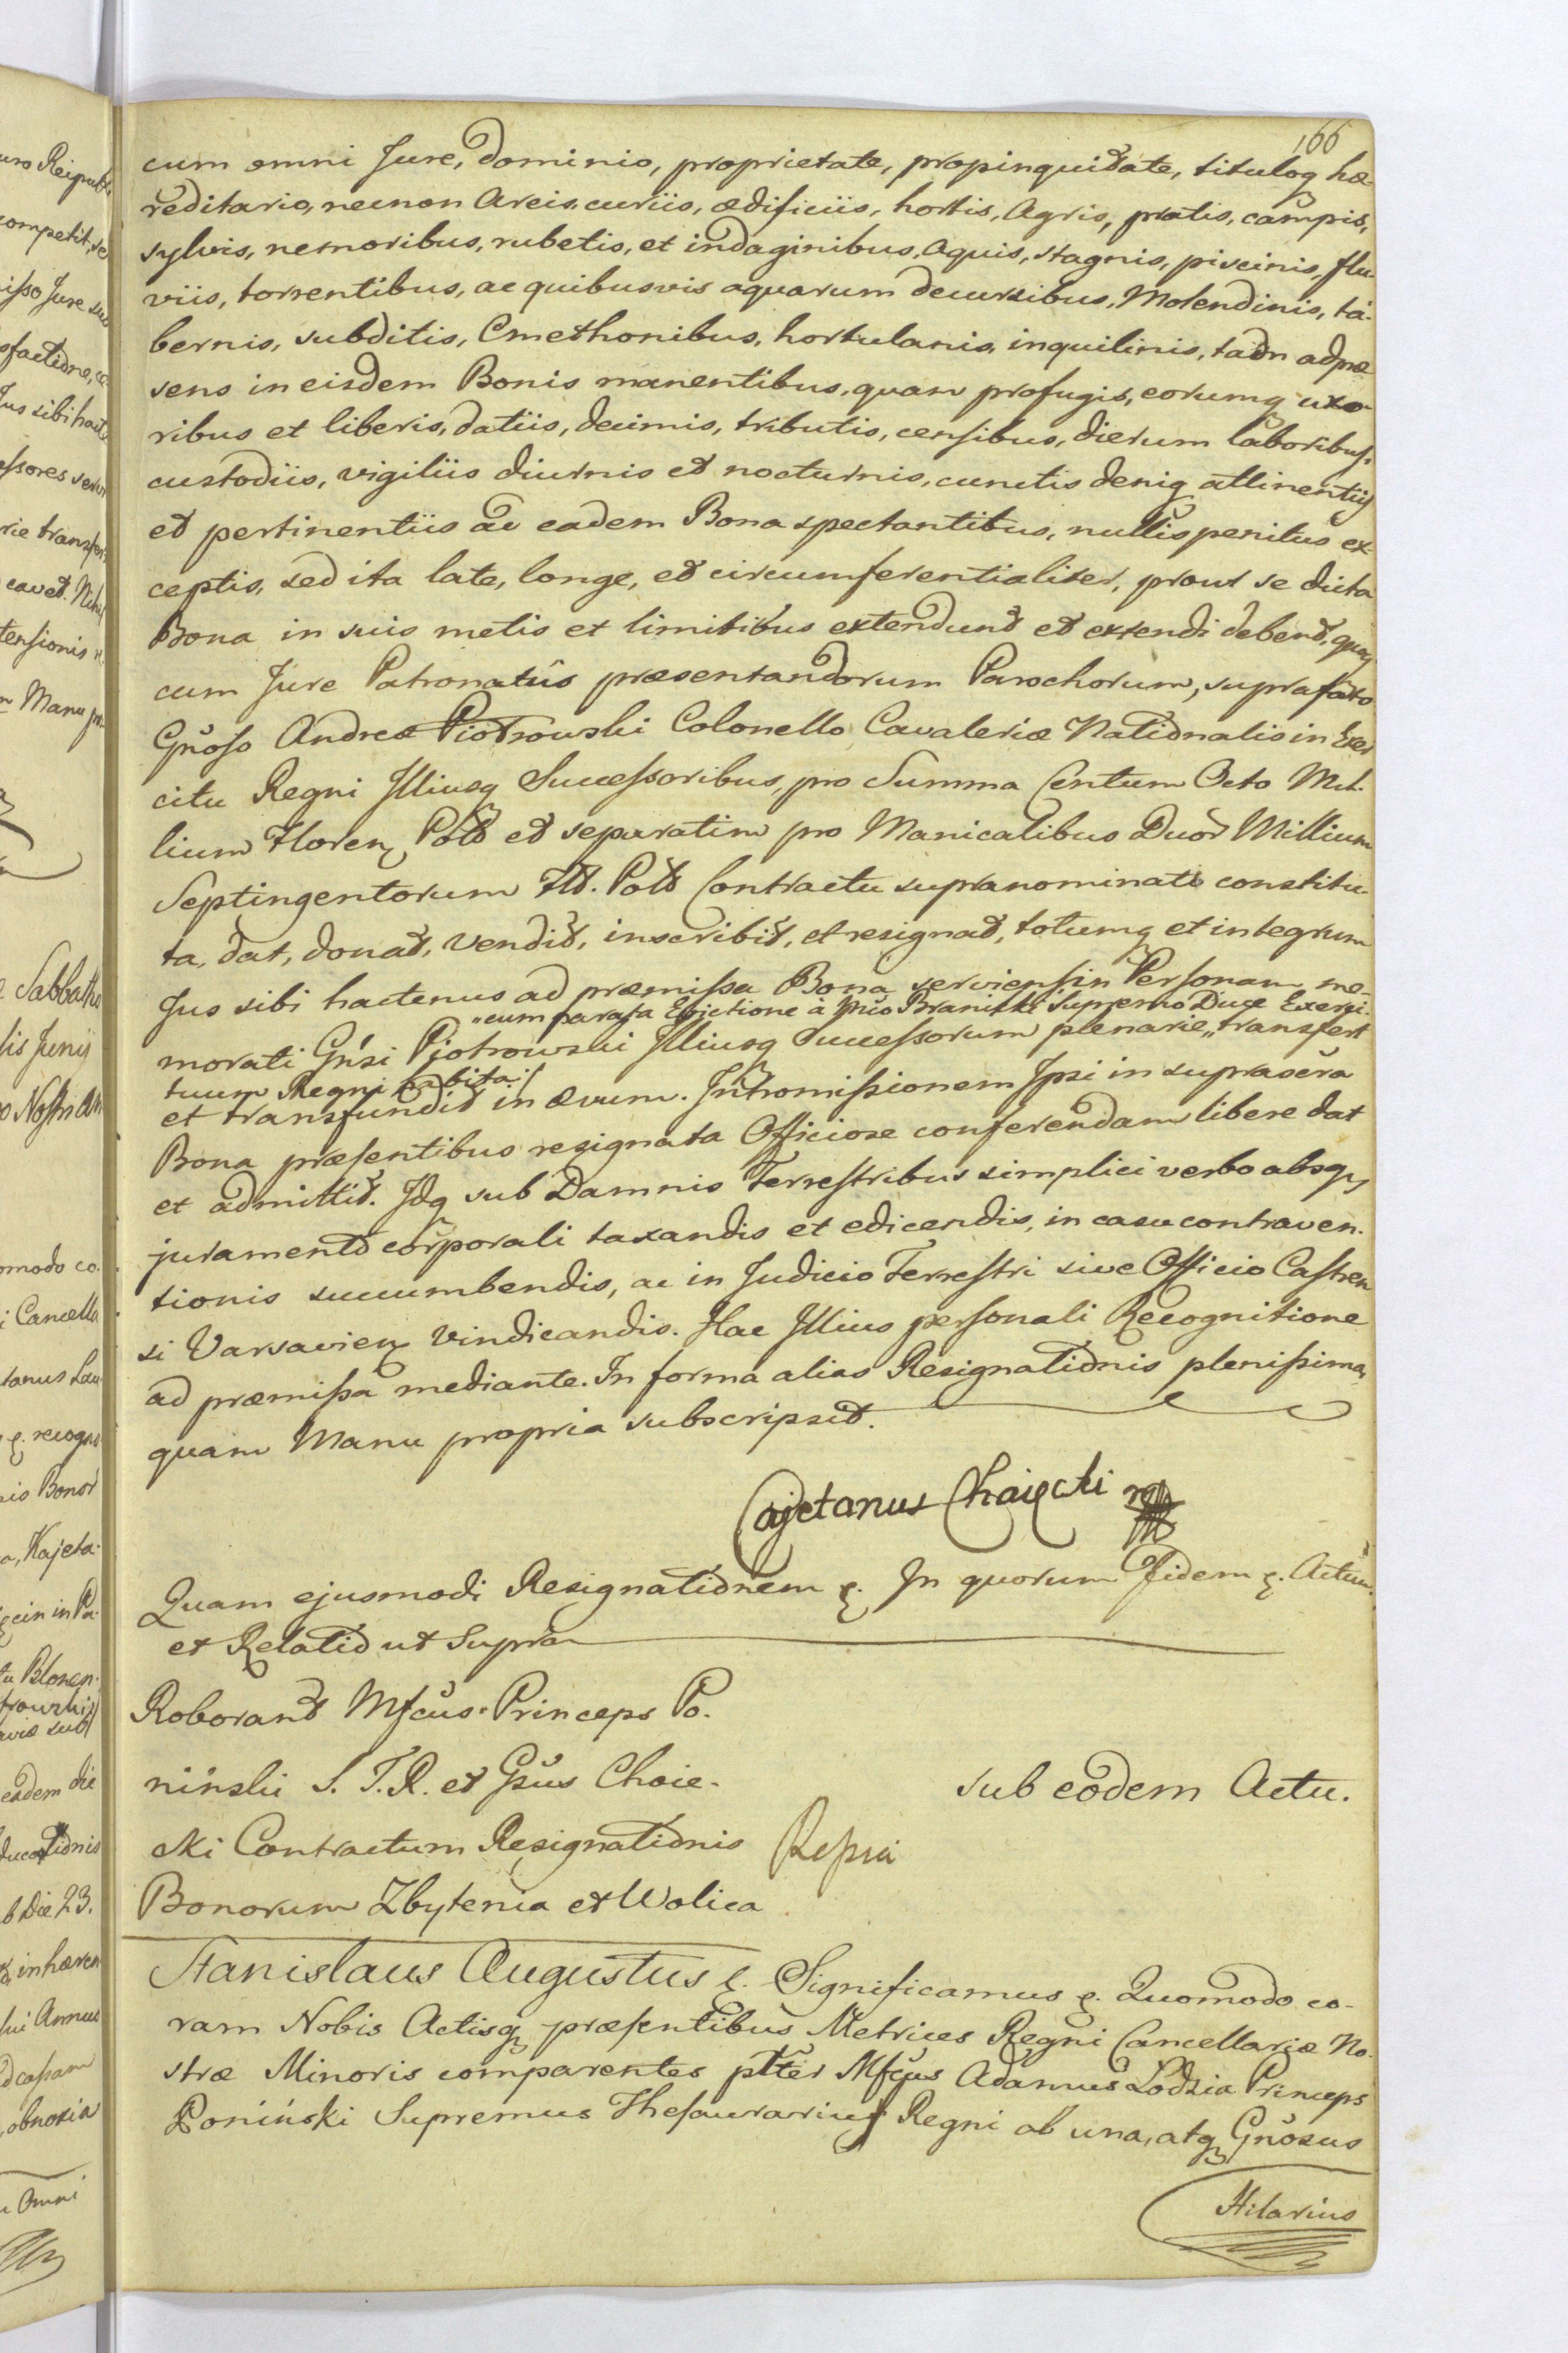 166
cum omni Jure, dominio, proprietate, propinquitate, tituloq hæ-
reditario, necnon Areis, curiis, ædificiis, hortis, Agris, pratis, campis,
sylvis, nemoribus, rubetis, et indaginibus, aquis, stagnis, piscinis, flu-
viis, torrentibus, ac quibusvis aquarum decursibus, Molendinis, ta-
bernis, subditis, Cmethonibus, hortulanis, inquilinis, tam ad præ
sens in eisdem Bonis manentibus, quam profugis, eorumq uxo-
ribus et liberis, datiis, decimis, tributis, censibus, dierum laboribus,
custodiis, vigiliis diurnis et nocturnis, cunctis deniq attinentiis
et pertinentiis ac eadem Bona spectantibus, nullis penitus ex-
ceptis, sed ita late, longe, et circumferentialiter, prout se dicta
Bona in suis metis et limitibus extendunt et extendi debent, quaq
cum Jure Patronatûs præsentandorum Parochorum, suprafato
Gnoso Andreæ Piotrowski Colonello Cavaleriæ Nationalis in Exer
citu Regni Illiusq Successoribus, pro Summa Centum Octo Mil-
lium Floren Pold et separatim pro Manicalibus Duor Millium
Septingentorum Fld. Pold Contractu supranominato constitu-
ta, dat, donat, vendit, inscribit, et resignat, totumq et integrum
Jus sibi hactenus ad præmissa Bona serviens in Personam me-
„cum parata Evictione à Mfco Branicki Supremo Duce Exerci-
morati Gnsi Piotrowski Illiusq Successorum plenarie„ transfert
tuum Regni habita:/
et transfundit in ævum. Intromissionem Ipsi in suprascra
Bona præsentibus resignata Officiose conferendam libere dat
et admittit. Idq sub Damnis Terrestribus simplici verbo absq
juramento corporali taxandis et edicendis, in casu contraven-
tionis succumbendis, ac in Judicio Terrestri sive Officio Castren
si Varsavien vindicandis. Hac Illius personali Recognitione
ad præmissa mediante. In forma alias Resignationis plenissima,
quam Manu propria subscripsit.
Cajetanus Choiecki mp
Quam ejusmodi Resignationem &. In quorum Fidem &. Actum
et Relatio ut Supra
Roborant Mfcus Princeps Po-
niński S. T. R. et Gsus Choie-
cki Contractum Resignationis
Bonorum Zbytenia et Wolica
sub eodem Actu.
Stanislaus Augustus &. Significamus &. Quomodo co-
ram Nobis Actisq præsentibus Metrices Regni Cancellariæ No-
stræ Minoris comparentes pltter Mfcus Adamus Lodzia Princeps
Poniński Supremus Thesaurarius Regni ab una, atq Gnosus
Hilarius